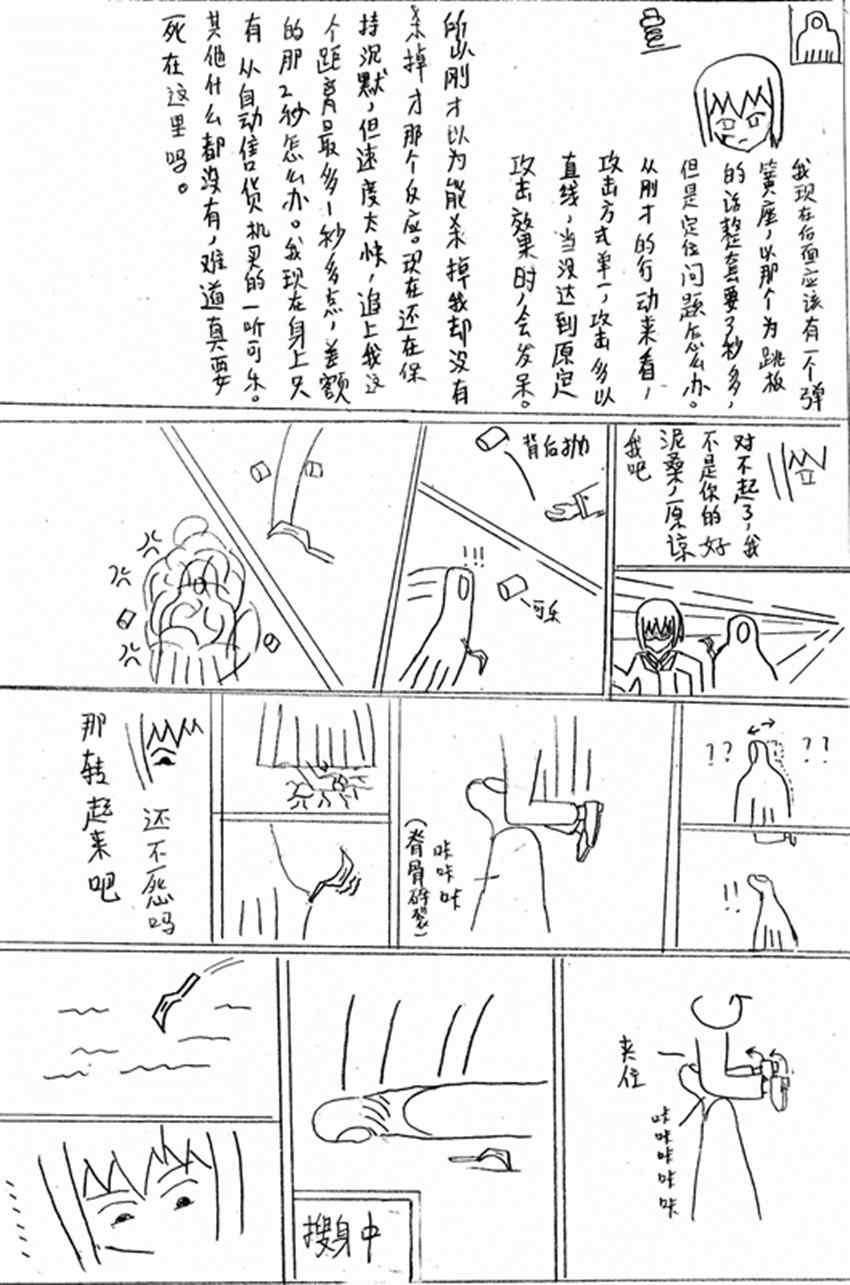 我现在后面应该有一个弹
簧座，以那个为跳板
的话整套要了秒多，
但是定位问题怎么办。
从刚才的行动来看，
攻击方式单一，攻击多以
直线，当没达到原定
攻击效果时，会发呆。
所以刚才以为能杀掉我却没有
杀掉才那个反应。现在还在保
持沉默，但速度太快，追上我这
个距离最多1秒多点，差额
的那2秒怎么办。我现在身上只
有从自动售货机买的一听可乐。
其他什么都没有，难道真要
死在这里吗。
对不起了，我
不是你的好
泥桑，原谅
我吧
背后抛
!!!
可乐
?? ??
!!
咔咔咔
(脊骨碎裂)
还不死吗
那转起来吧
夹住
咔咔咔咔咔
搜身中